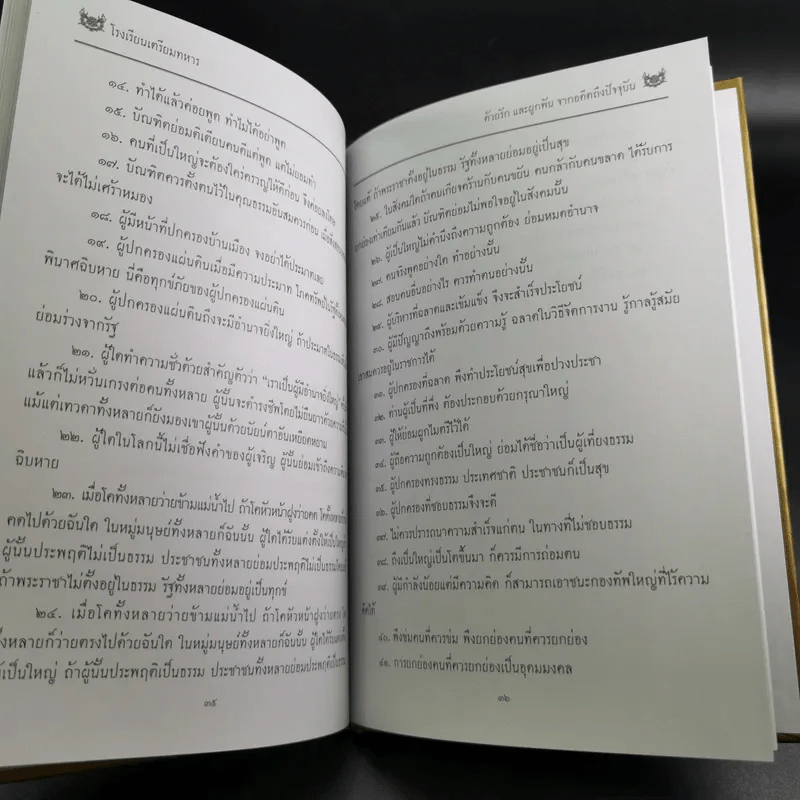 โรงเรียนเตรียมทหาร
๑๔. ทำได้แล้วค่อยพูด ทำไม่ได้อย่าพูด
๑๕. บัณฑิตย่อมติเตียนคนดีแต่พูด แต่ไม่ยอมทำ
๑๖. คนที่เป็นใหญ่จะต้องใคร่ครวญให้ดีก่อน จึงค่อยลงโทษ
๑๗. บัณฑิตควรตั้งตนไว้ในคุณธรรมอันสมควรก่อน
จะได้ไม่เศร้าหมอง
๑๘. ผู้มีหน้าที่ปกครองบ้านเมือง จงอย่าได้ประมาทเลย
๑๙. ผู้ปกครองแผ่นดินเมื่อมีความประมาท โภคทรัพย์ในรัฐ
พินาศฉิบหาย นี่คือทุกข์ภัยของผู้ปกครองแผ่นดิน
๒๐. ผู้ปกครองแผ่นดินถึงจะมีอำนาจยิ่งใหญ่ ถ้าประมาท
ย่อมร่วงจากรัฐ
๒๑. ผู้ใดทำความชั่วด้วยสำคัญตัวว่า "เราเป็นผู้มีอำนาจยิ่งใหญ่"
แล้วก็ไม่หวั่นเกรงต่อคนทั้งหลาย ผู้นั้นจะดำรงชีพโดยไม่ยืนยาวด้วย
แม้แต่เทวดาทั้งหลายก็ยังมองเขาผู้นั้นด้วยนัยน์ตาอันเหยียดหยาม
๒๒. ผู้ใดในโลกนี้ไม่เชื่อฟังคำของผู้เจริญ ผู้นั้นย่อมเข้าถึงความ
ฉิบหาย
๒๓. เมื่อโคทั้งหลายว่ายข้ามแม่น้ำไป ถ้าโคหัวหน้าฝูงว่ายคด
คดไปด้วยฉันใด ในหมู่มนุษย์ทั้งหลายก็ฉันนั้น ผู้ใดได้รับแต่งตั้งให้เป็นใหญ่
ผู้นั้นประพฤติไม่เป็นธรรม ประชาชนทั้งหลายย่อมประพฤติไม่เป็นธรรม
ถ้าพระราชาไม่ตั้งอยู่ในธรรม รัฐทั้งหลายย่อมอยู่เป็นทุกข์
๒๔. เมื่อโคทั้งหลายว่ายข้ามแม่น้ำไป ถ้าโคหัวหน้าฝูงว่ายตรง
ทั้งหลายก็ว่ายตรงไปด้วยฉันใด ในหมู่มนุษย์ทั้งหลายก็ฉันนั้น ผู้ใดได้รับ
เป็นใหญ่ ถ้าผู้นั้นประพฤติเป็นธรรม ประชาชนทั้งหลายย่อมประพฤติเป็นธรรม
๓๕
ด้วยรัก และผูกพัน จากอดีตถึงปัจจุบัน
โดยแท้ ถ้าพระราชาตั้งอยู่ในธรรม รัฐทั้งหลายย่อมอยู่เป็นสุข
๒๕. ในสังคมใดถ้าคนเกียจคร้านกับคนขยัน คนกล้ากับคนขลาด ได้รับการ
ยกย่องเท่าเทียมกันแล้ว บัณฑิตย่อมไม่พอใจอยู่ในสังคมนั้น
๒๖. ผู้เป็นใหญ่ไม่คำนึงถึงความถูกต้อง ย่อมหมดอำนาจ
๒๗. คนจริงพูดอย่างใด ทำอย่างนั้น
๒๘. สอนคนอื่นอย่างไร ควรทำตนอย่างนั้น
๒๙. ผู้บริหารที่ฉลาดและเข้มแข็ง จึงจะสำเร็จประโยชน์
๓๐. ผู้มีปัญญาถึงพร้อมด้วยความรู้ ฉลาดในวิธีจัดการงาน รู้กาลรู้สมัย
เขาสมควรอยู่ในราชการได้
๓๑. ผู้ปกครองที่ฉลาด พึงทำประโยชน์สุขเพื่อปวงประชา
๓๒. ท่านผู้เป็นที่พึ่ง ต้องประกอบด้วยกรุณาใหญ่
๓๓. ผู้ให้ย่อมผูกไมตรีไว้ได้
๓๔. ผู้ถือความถูกต้องเป็นใหญ่ ย่อมได้ชื่อว่าเป็นผู้เที่ยงธรรม
๓๕. ผู้ปกครองทรงธรรม ประเทศชาติ ประชาชนก็เป็นสุข
๓๖. ผู้ปกครองที่ชอบธรรมจึงจะดี
๓๗. ไม่ควรปรารถนาความสำเร็จแก่ตน ในทางที่ไม่ชอบธรรม
๓๘. ถึงเป็นใหญ่เป็นโตขึ้นมา ก็ควรมีการถ่อมตน
๓๙. ผู้มีกำลังน้อยแต่มีความคิด ก็สามารถเอาชนะกองทัพใหญ่ที่ไร้ความ
คิดได้
๔๐. พึงข่มคนที่ควรข่ม พึงยกย่องคนที่ควรยกย่อง
๔๑. การยกย่องคนที่ควรยกย่องเป็นอุดมมงคล
๓๖